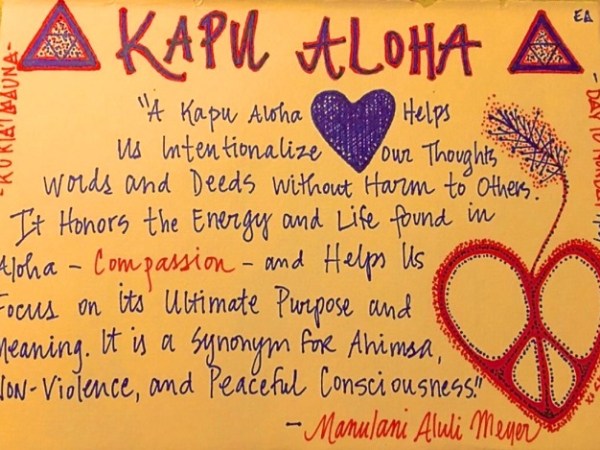 KAPU ALOHA
EA
"A Kapu Aloha Helps
Us Intentionalize our Thoughts
Words and Deeds without Harm to Others.
It Honors the Energy and Life found in
Aloha - Compassion - and Helps Us
Focus on its Ultimate Purpose and
Meaning. It is a Synonym for Ahimsa,
Non-Violence, and Peaceful Consciousness."
- Manulani Aluli Meyer